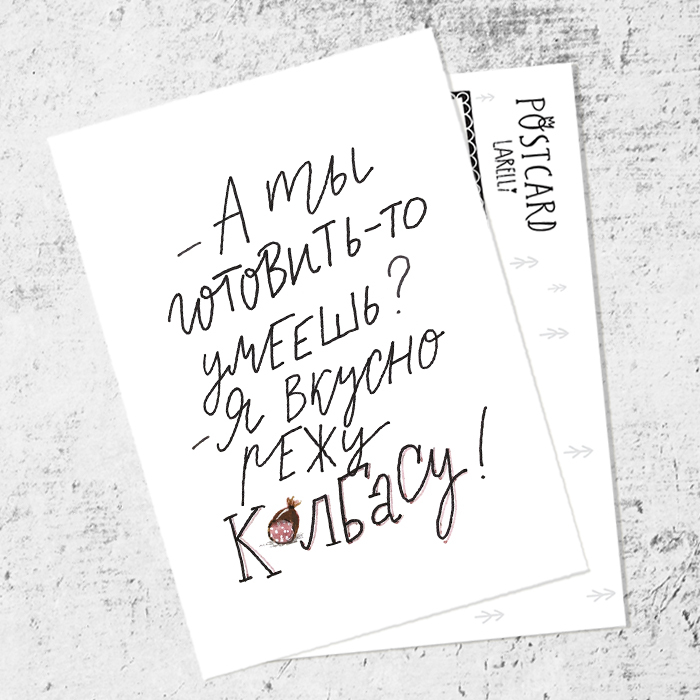 - А ты
готовить-то
умеешь?
- Я вкусно
режу
колбасу!
POSTCARD
LARELLI